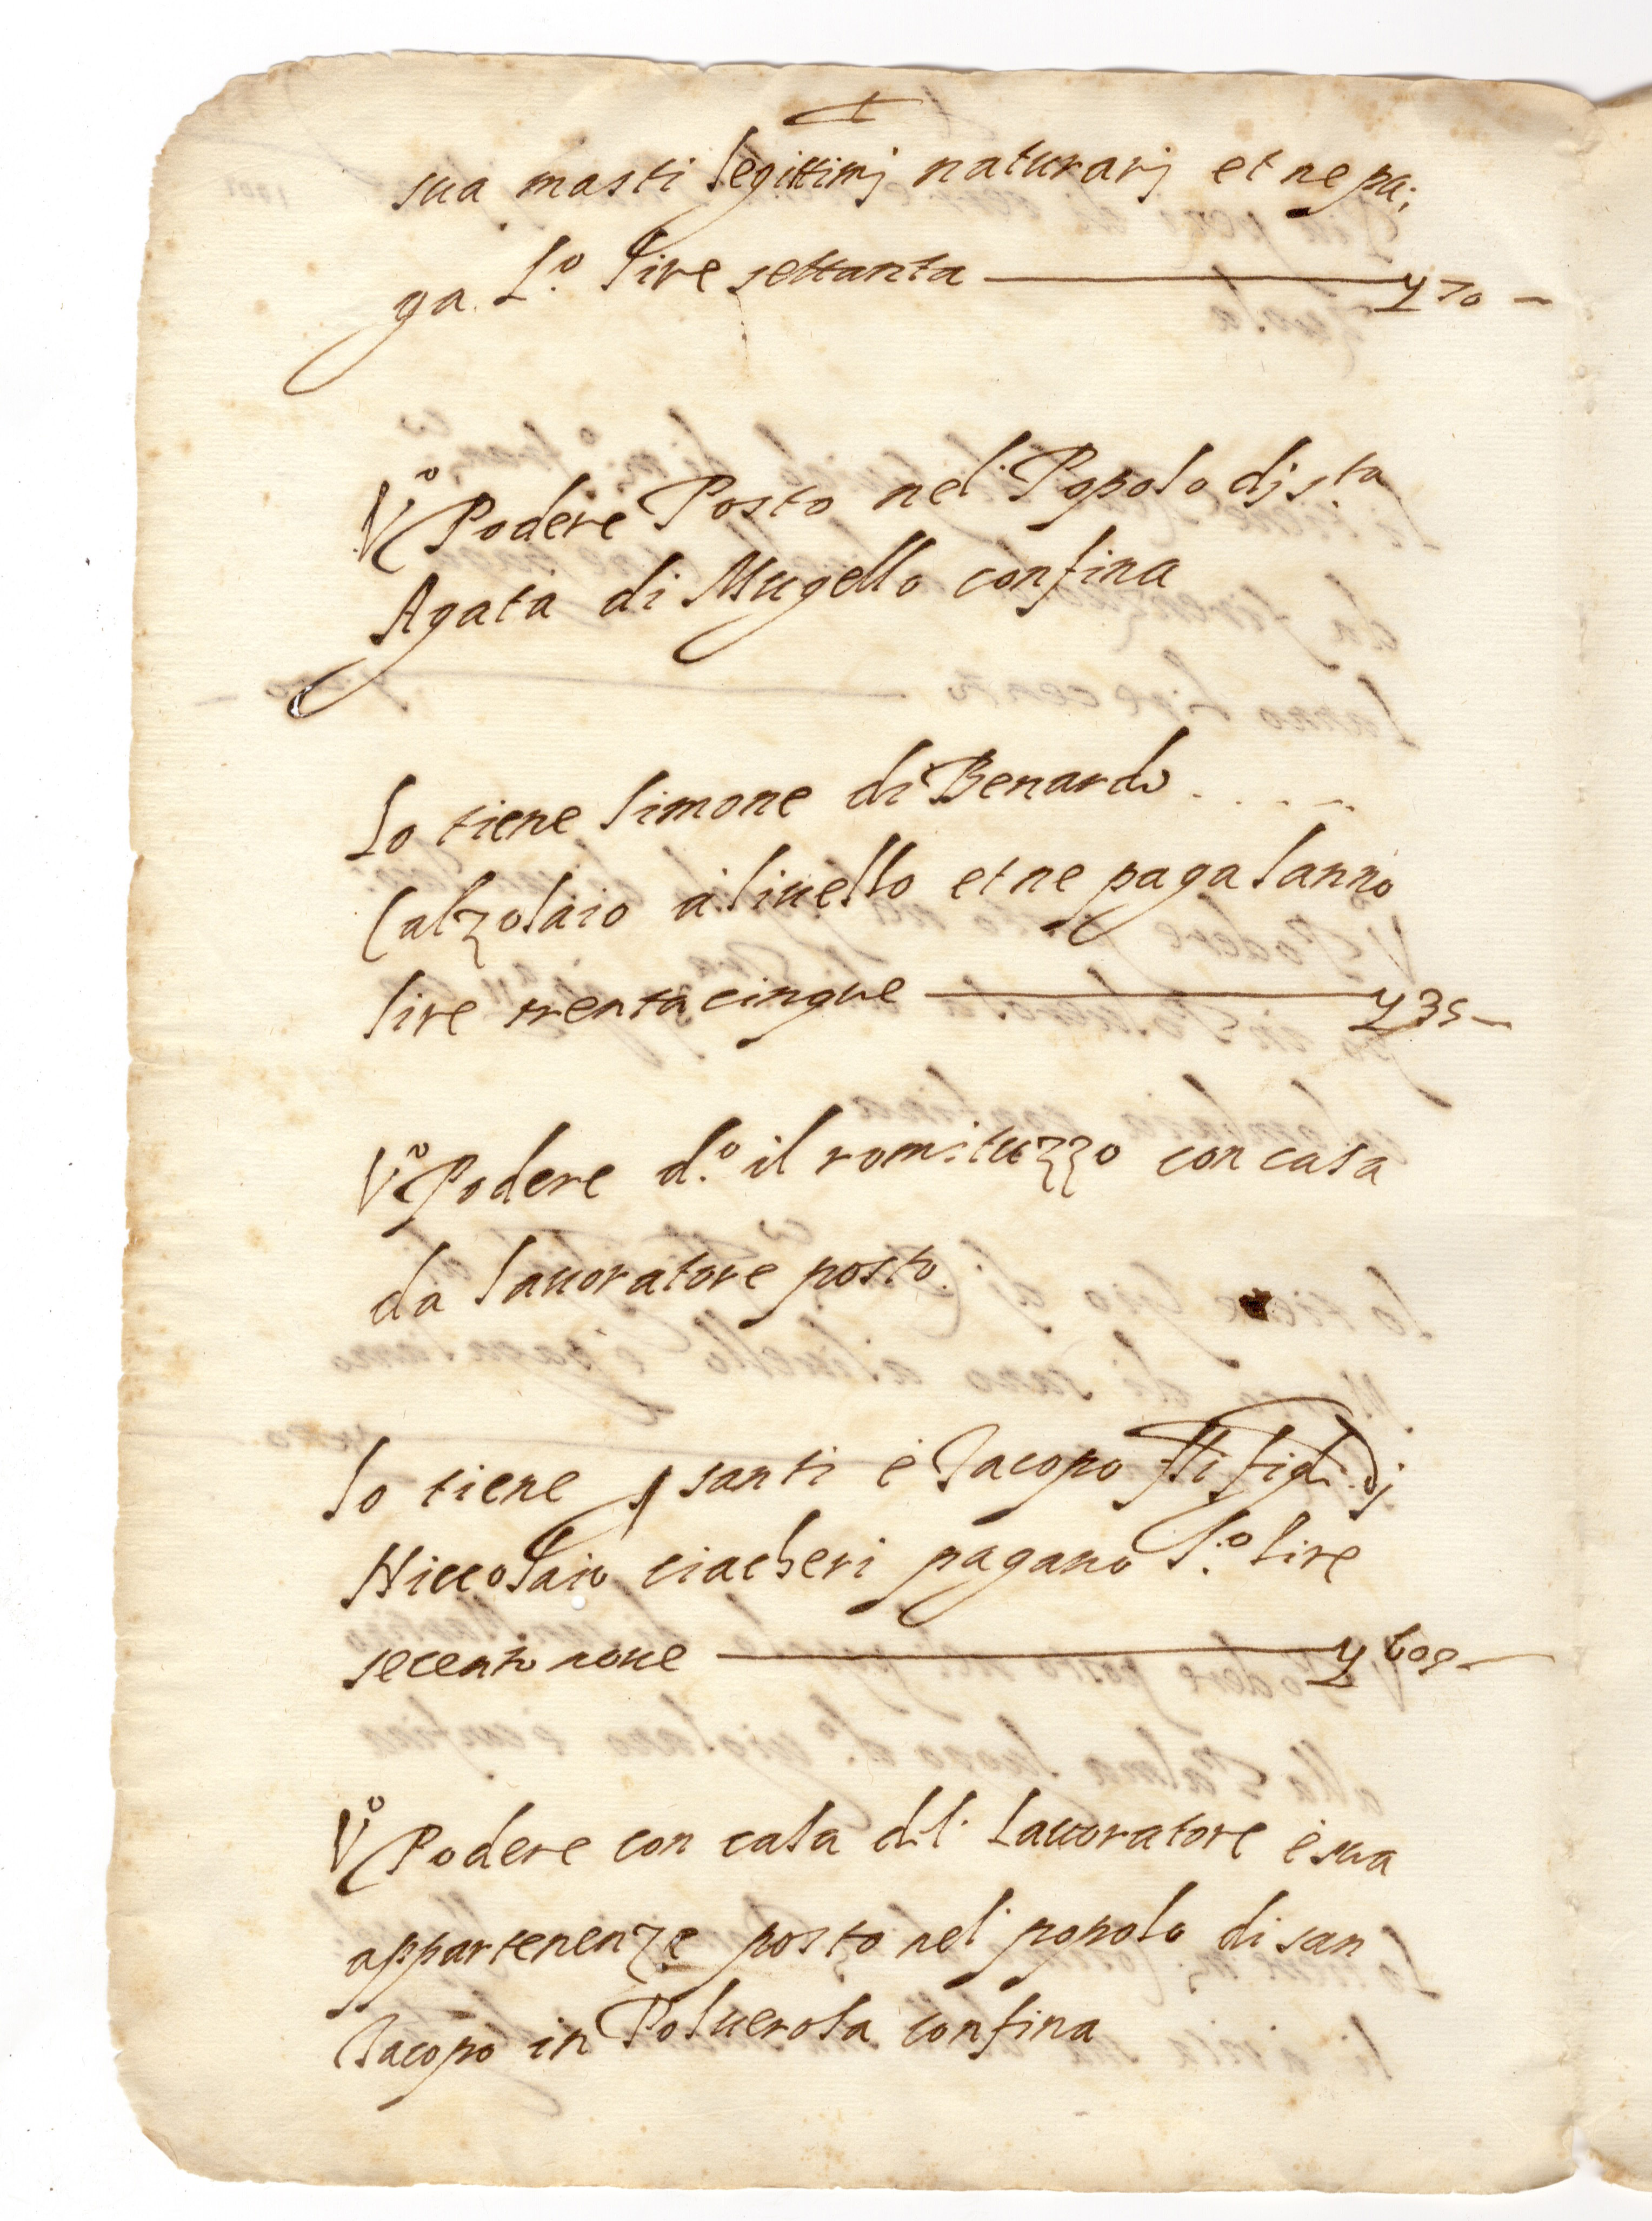 sua masti legittimj naturarj et ne pa;
ga L.o lire settanta ——— 70 —
Vo Podere Posto nel Popolo dj s.ta
Agata di Mugello confina
Lo tiene Simone di Benardo . . . . .
Calzolaio a livello et ne paga lanno
lire trentacinque ——— 35 —
Vo Podere d.o il romituzzo con casa
da lavoratore posto
lo tiene santi e Jacopo flli figli dj
Niccolaio ciacheri pagano l.o lire
secento nove ——— 609 —
Vo Podere con casa del Lauoratore e sua
appartenenze posto nel popolo di san
Jacopo in Poluerosa confina